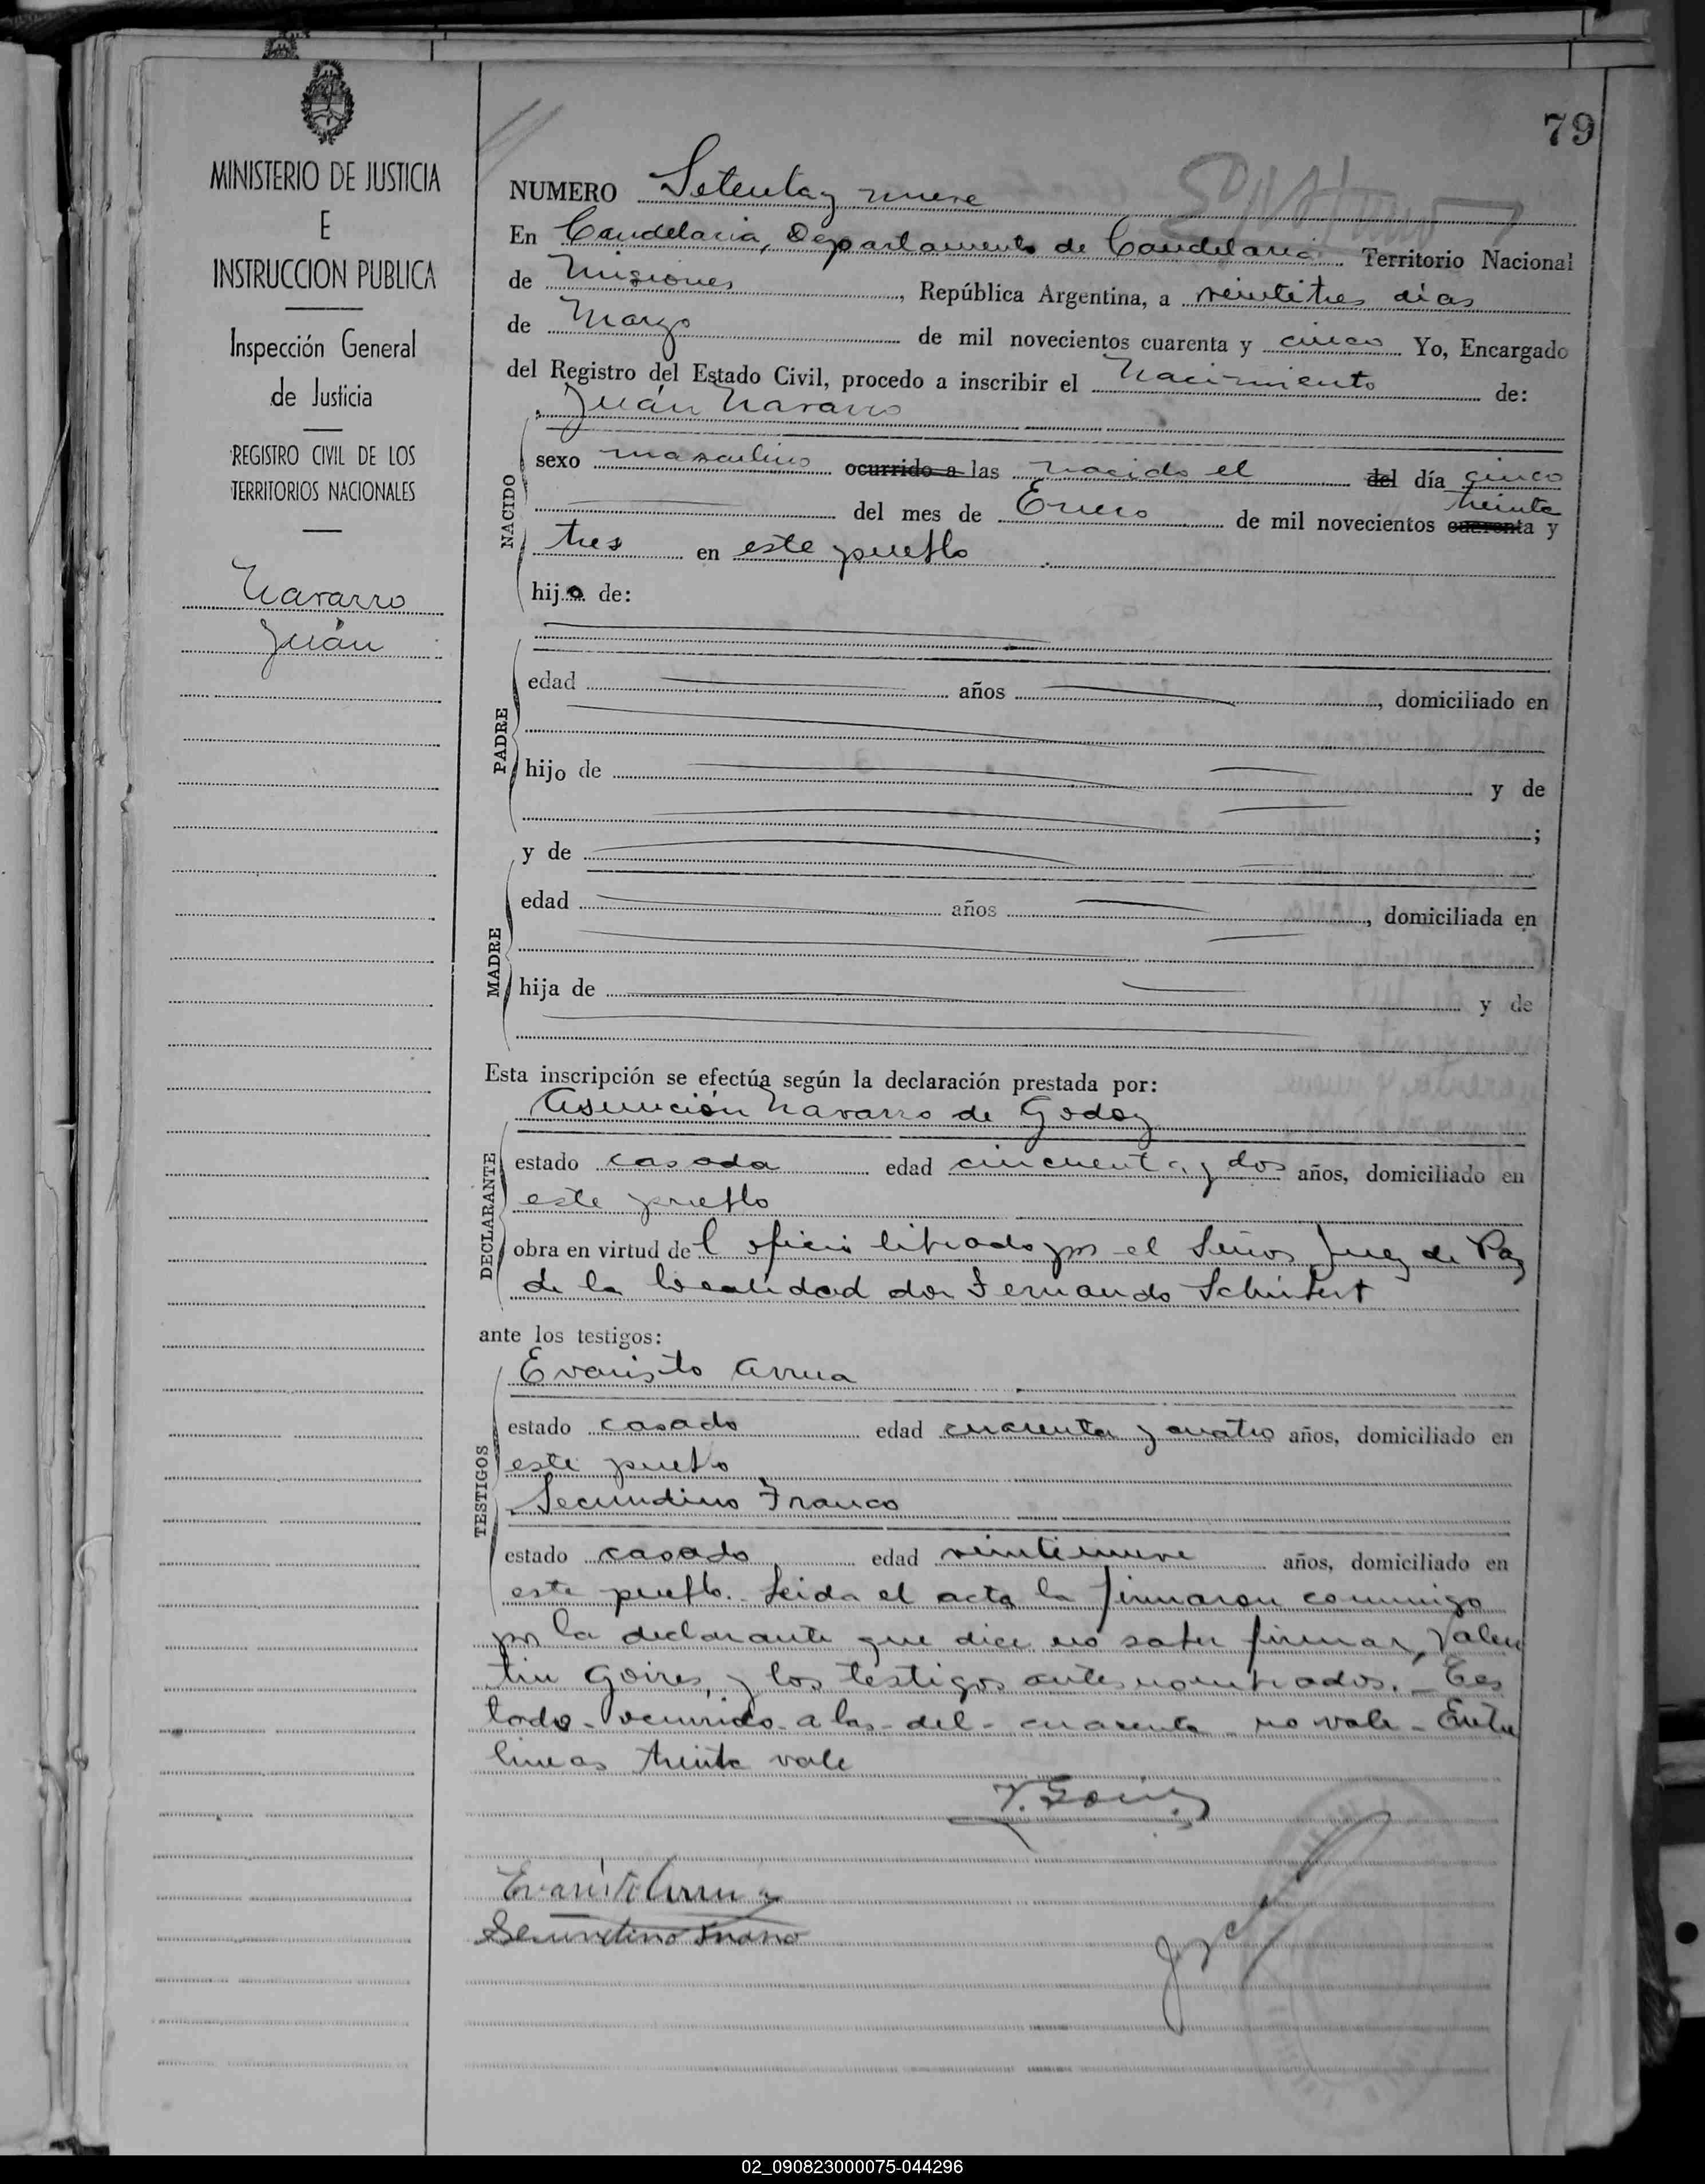 79
MINISTERIO DE JUSTICIA
E
INSTRUCCION PUBLICA
Inspección General
de Justicia
REGISTRO CIVIL DE LOS
TERRITORIOS NACIONALES
Navarro
Juán
NUMERO Setenta y nueve
En Candelaria, Departamento de Candelaria Territorio Nacional
de Misiones, República Argentina, a veintitres días
de Marzo de mil novecientos cuarenta y cinco Yo, Encargado
del Registro del Estado Civil, procedo a inscribir el Nacimiento de:
Juán Navarro
NACIDO
sexo masculino ocurrido a las nacido el del día cinco
treinta
del mes de Enero de mil novecientos cuarenta y
tres en este pueblo
hijo de:
PADRE
edad años , domiciliado en
hijo de y de
;
y de
MADRE
edad años , domiciliada en
hija de y de
Esta inscripción se efectúa según la declaración prestada por:
Asunción Navarro de Godoy
DECLARANTE
estado casada edad cincuenta y dos años, domiciliado en
este pueblo
obra en virtud del oficio librado por el Señor Juez de Paz
de la localidad don Fernando Schubert
ante los testigos:
TESTIGOS
Evaristo Arrua
estado casado edad cuarenta y cuatro años, domiciliado en
este pueblo
Secundino Franco
estado casado edad veintinueve años, domiciliado en
este pueblo. Leida el acta la firmaron conmigo
por la declarante que dice no saber firmar, Valen
tin Goires, y los testigos antes nombrados. - Tes
tado - ocurrido - a las - del - cuarenta no vale - Entre
lineas treinta vale
Evaristo Arrua
02_090823000075-044296